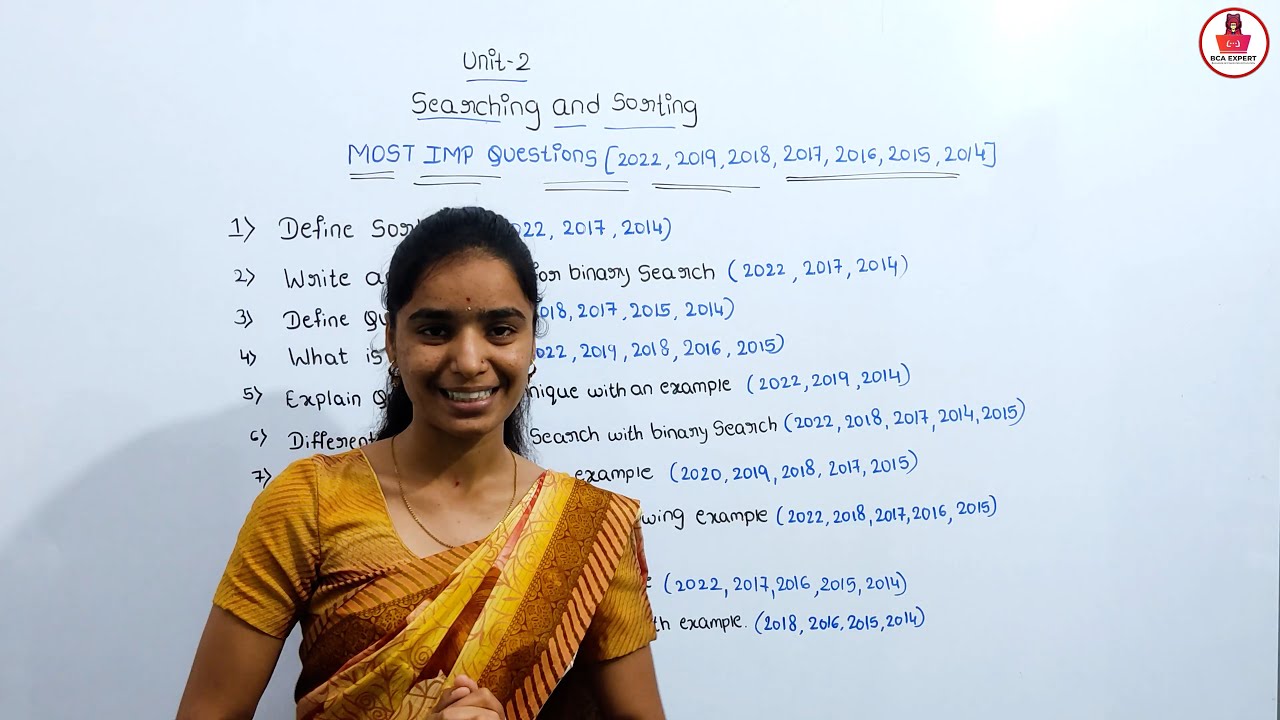 BCA EXPERT
Unit-2
Searching and Sorting
MOST IMP Questions [2022, 2019, 2018, 2017, 2016, 2015, 2014]
1) Define 22, 2017, 2014)
2) Write for binary Search (2022, 2017, 2014)
3) Define 018, 2017, 2015, 2014)
4) What is 022, 2019, 2018, 2016, 2015)
5) Explain nique with an example (2022, 2019, 2014)
6) Different Search with binary Search (2022, 2018, 2017, 2014, 2015)
7) example (2020, 2019, 2018, 2017, 2015)
wing example (2022, 2018, 2017, 2016, 2015)
(2022, 2017, 2016, 2015, 2014)
th example. (2018, 2016, 2015, 2014)